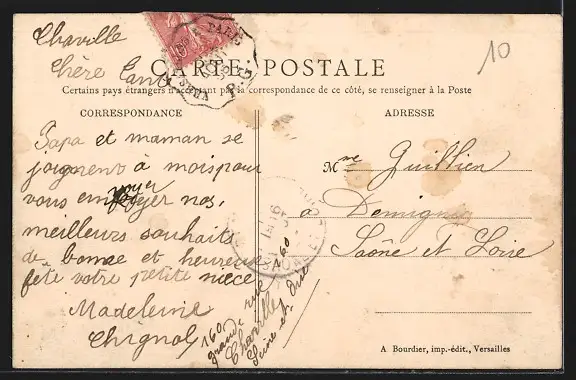 Chaville
Chère Tante
10
CARTE POSTALE
Certains pays étrangers n'acceptant pas la correspondance de ce côté, se renseigner à la Poste
CORRESPONDANCE
Papa et maman se
joignent à mois pour
vous envoyer nos,
meilleurs souhaits
de bonne et heureuse
fête votre petite nièce
Madeleine
Chignol
160
grande rue
Chaville
Seine et Oise
ADRESSE
Mme Guillien
à Demigny
Saône et Loire
A Bourdier, imp.-édit., Versailles